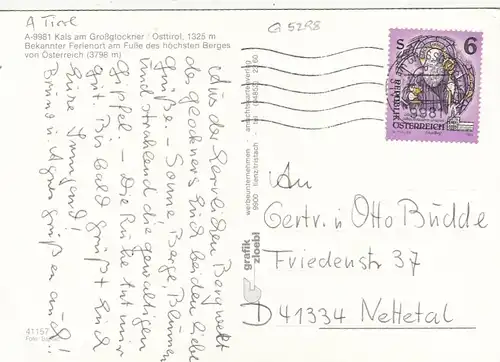 A Tirol
G 5298
A-9981 Kals am Großglockner / Osttirol, 1325 m
Bekannter Ferienort am Fuße des höchsten Berges
von Österreich (3798 m)
Aus der herrlichen Bergwelt
des Glockners Euch beiden liebe
Grüße. – Sonne, Berge, Blumen
und strahlend die gewaltigen
Gipfel. – Die Ruhe tut mir
gut. Bis bald grüßt Euch
Eure Irmgard!
Bruno u. Agnes grüßen auch!
41157
Foto:
werbeunternehmen · ansichtskartenverlag
9900 lienz/tristach · tel. (04852)
grafik
zloebl
S 6
REPUBLIK
ÖSTERREICH
9981
An
Gertr. u Otto Budde
Friedenstr 37
D 41334 Nettetal